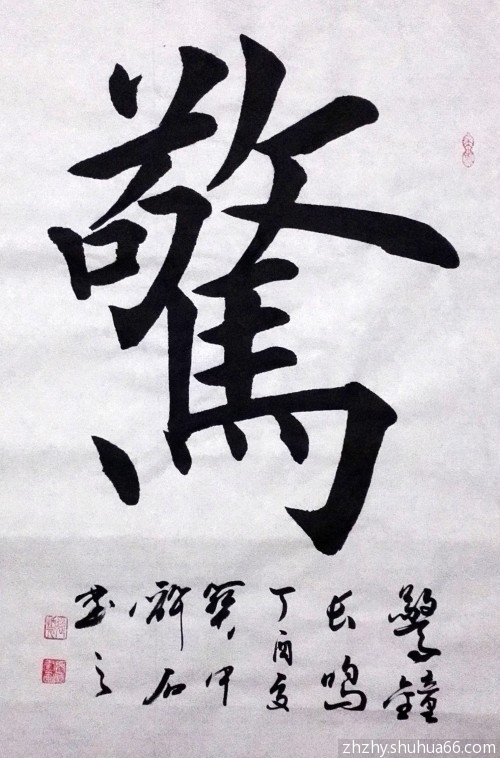 驚
驚鐘
长鳴
丁酉夏
癸甲
石
書之
zhzhyshuhua66.com